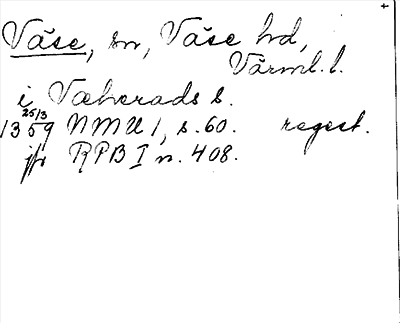 Väse, sn, Väse hd,
Värml. l.
i Væherads s.
25/3
1359 NMU 1, s. 60. regest.
jfr RPB I n. 408.